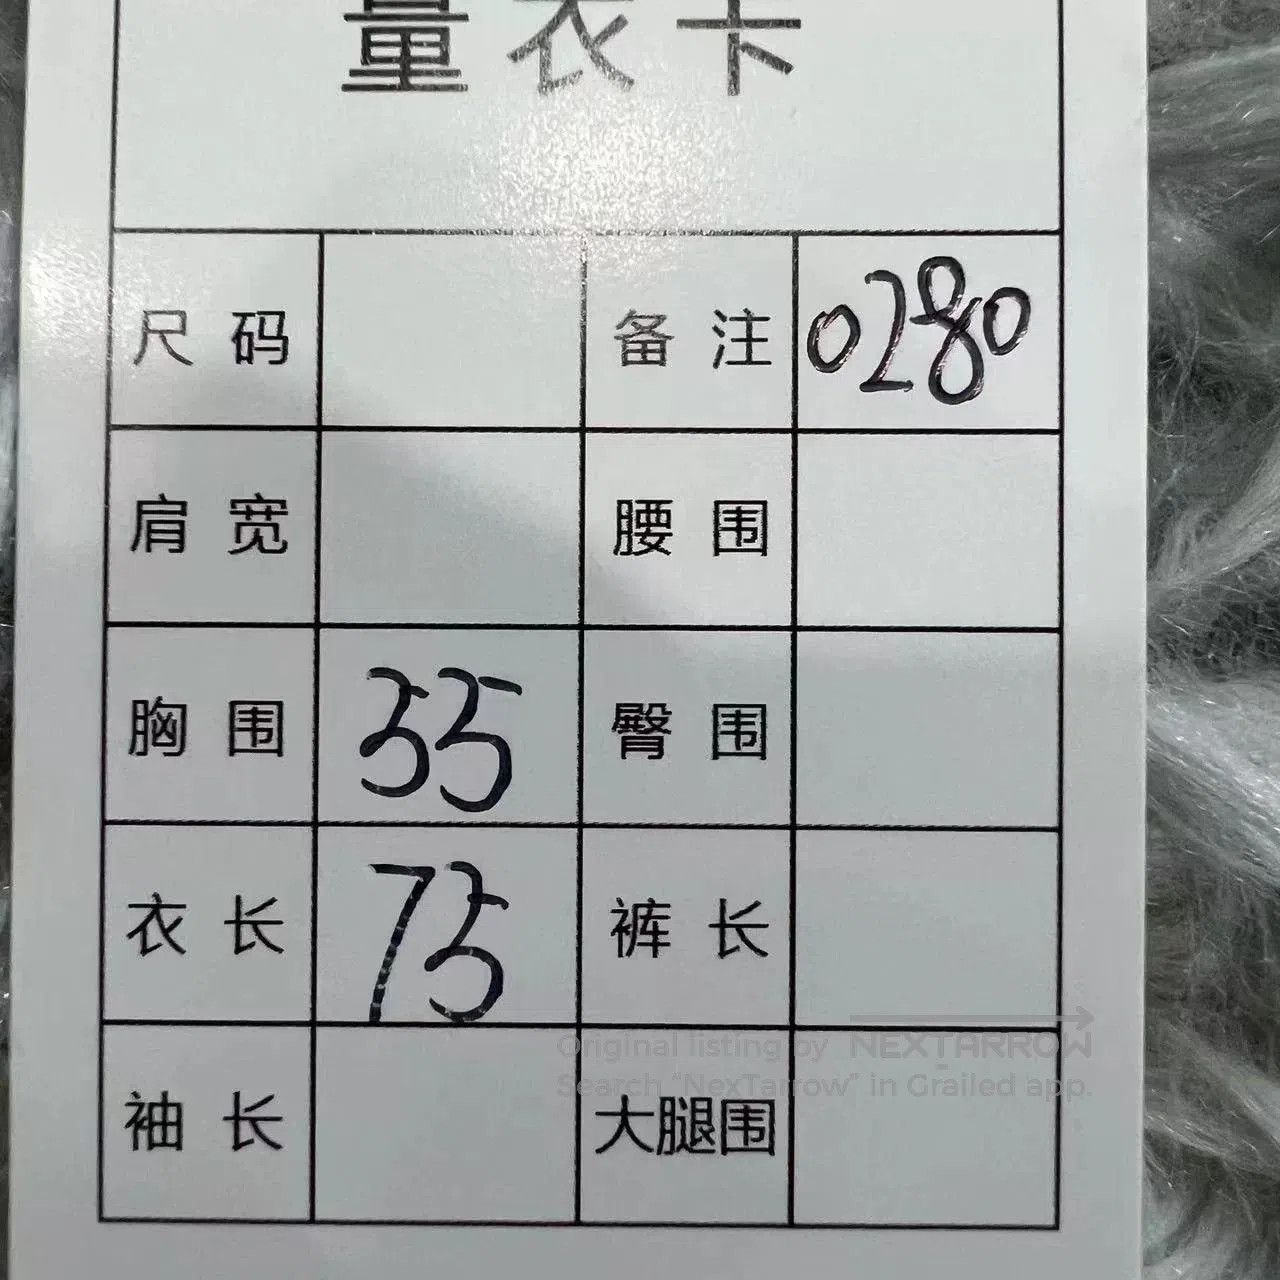 量衣卡
尺码 备注 0280
肩宽 腰围
胸围 55 臀围
衣长 75 裤长
Original listing by NEXTARROW
Search "NexTarrow" in Grailed app.
袖长 大腿围